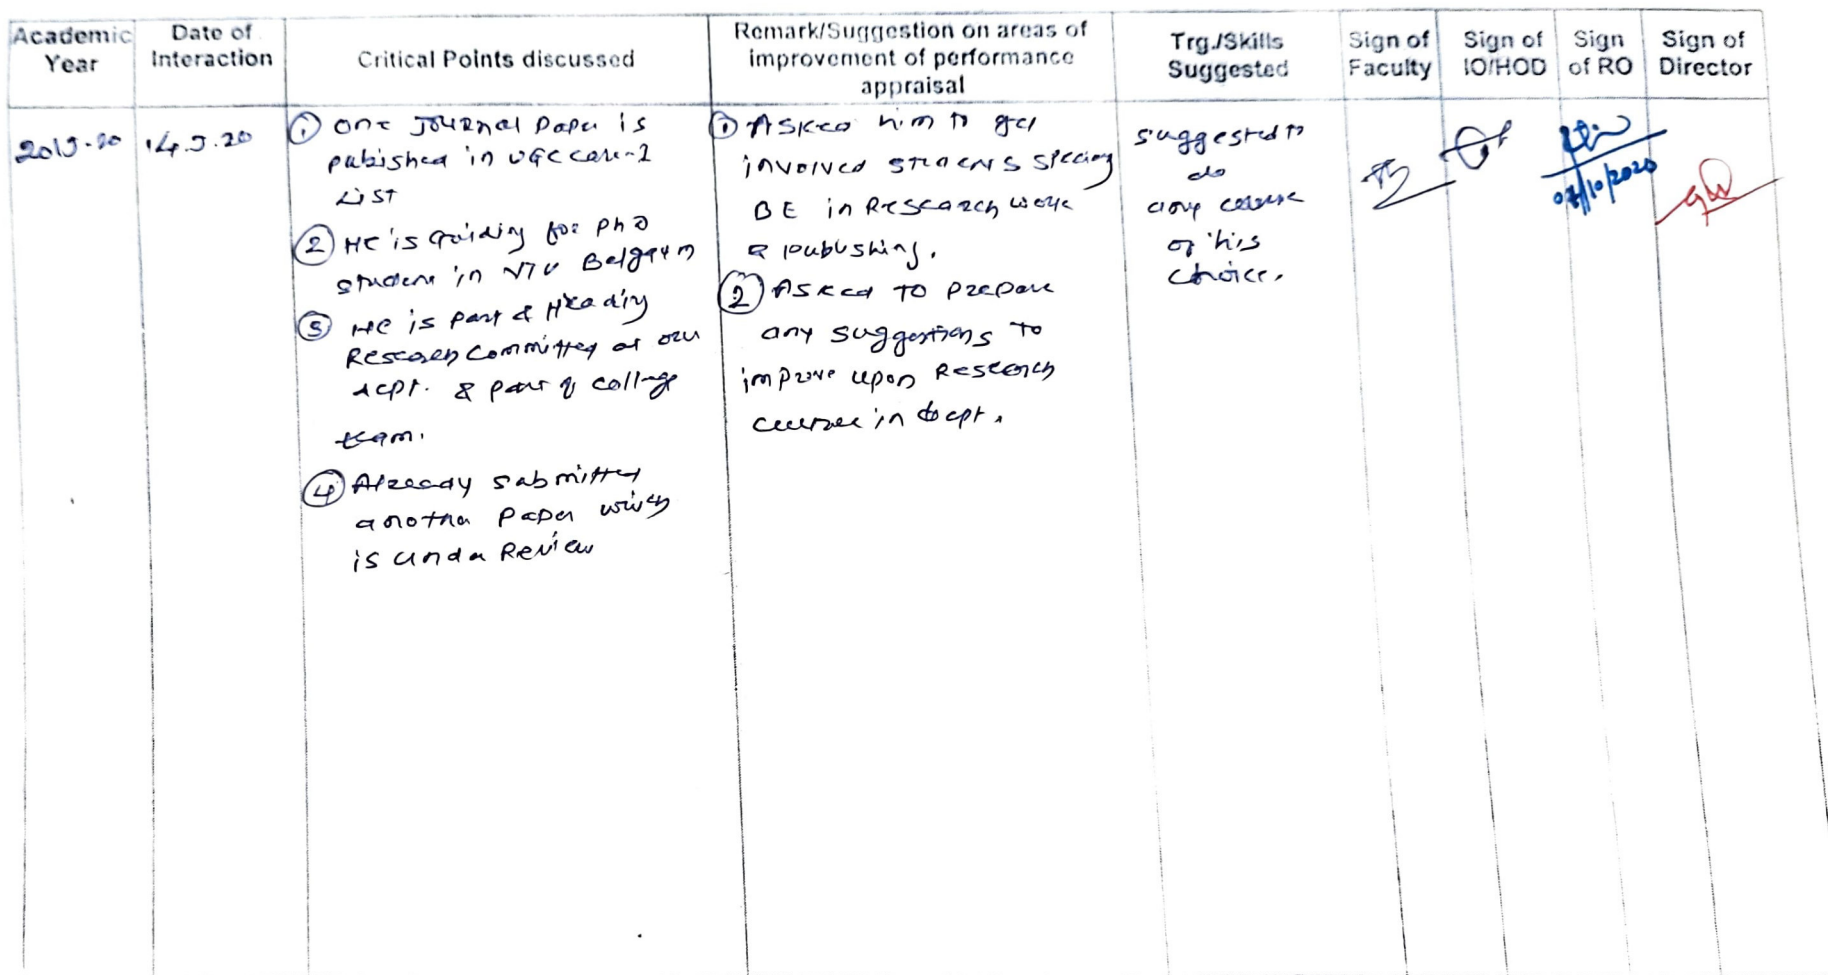 Academic Year
Date of Interaction
Critical Points discussed
Remark/Suggestion on areas of improvement of performance appraisal
Trg./Skills Suggested
Sign of Faculty
Sign of IO/HOD
Sign of RO
Sign of Director
2019-20
14.9.20
① One Journal Paper is
pubished in UGC care-1
List
② He is Guiding for PhD
student in VTU Belgaum
③ He is part & Heading
Research Committey at our
dept. & part of college
team.
④ Already submitted
another Paper which
is under Review
① Asked him to get
involved students
BE in Research work
& publishing.
② Asked to prepare
any suggestions to
improve upon Research
in dept.
suggested to
do
any course
of his
choice.
07/10/2020